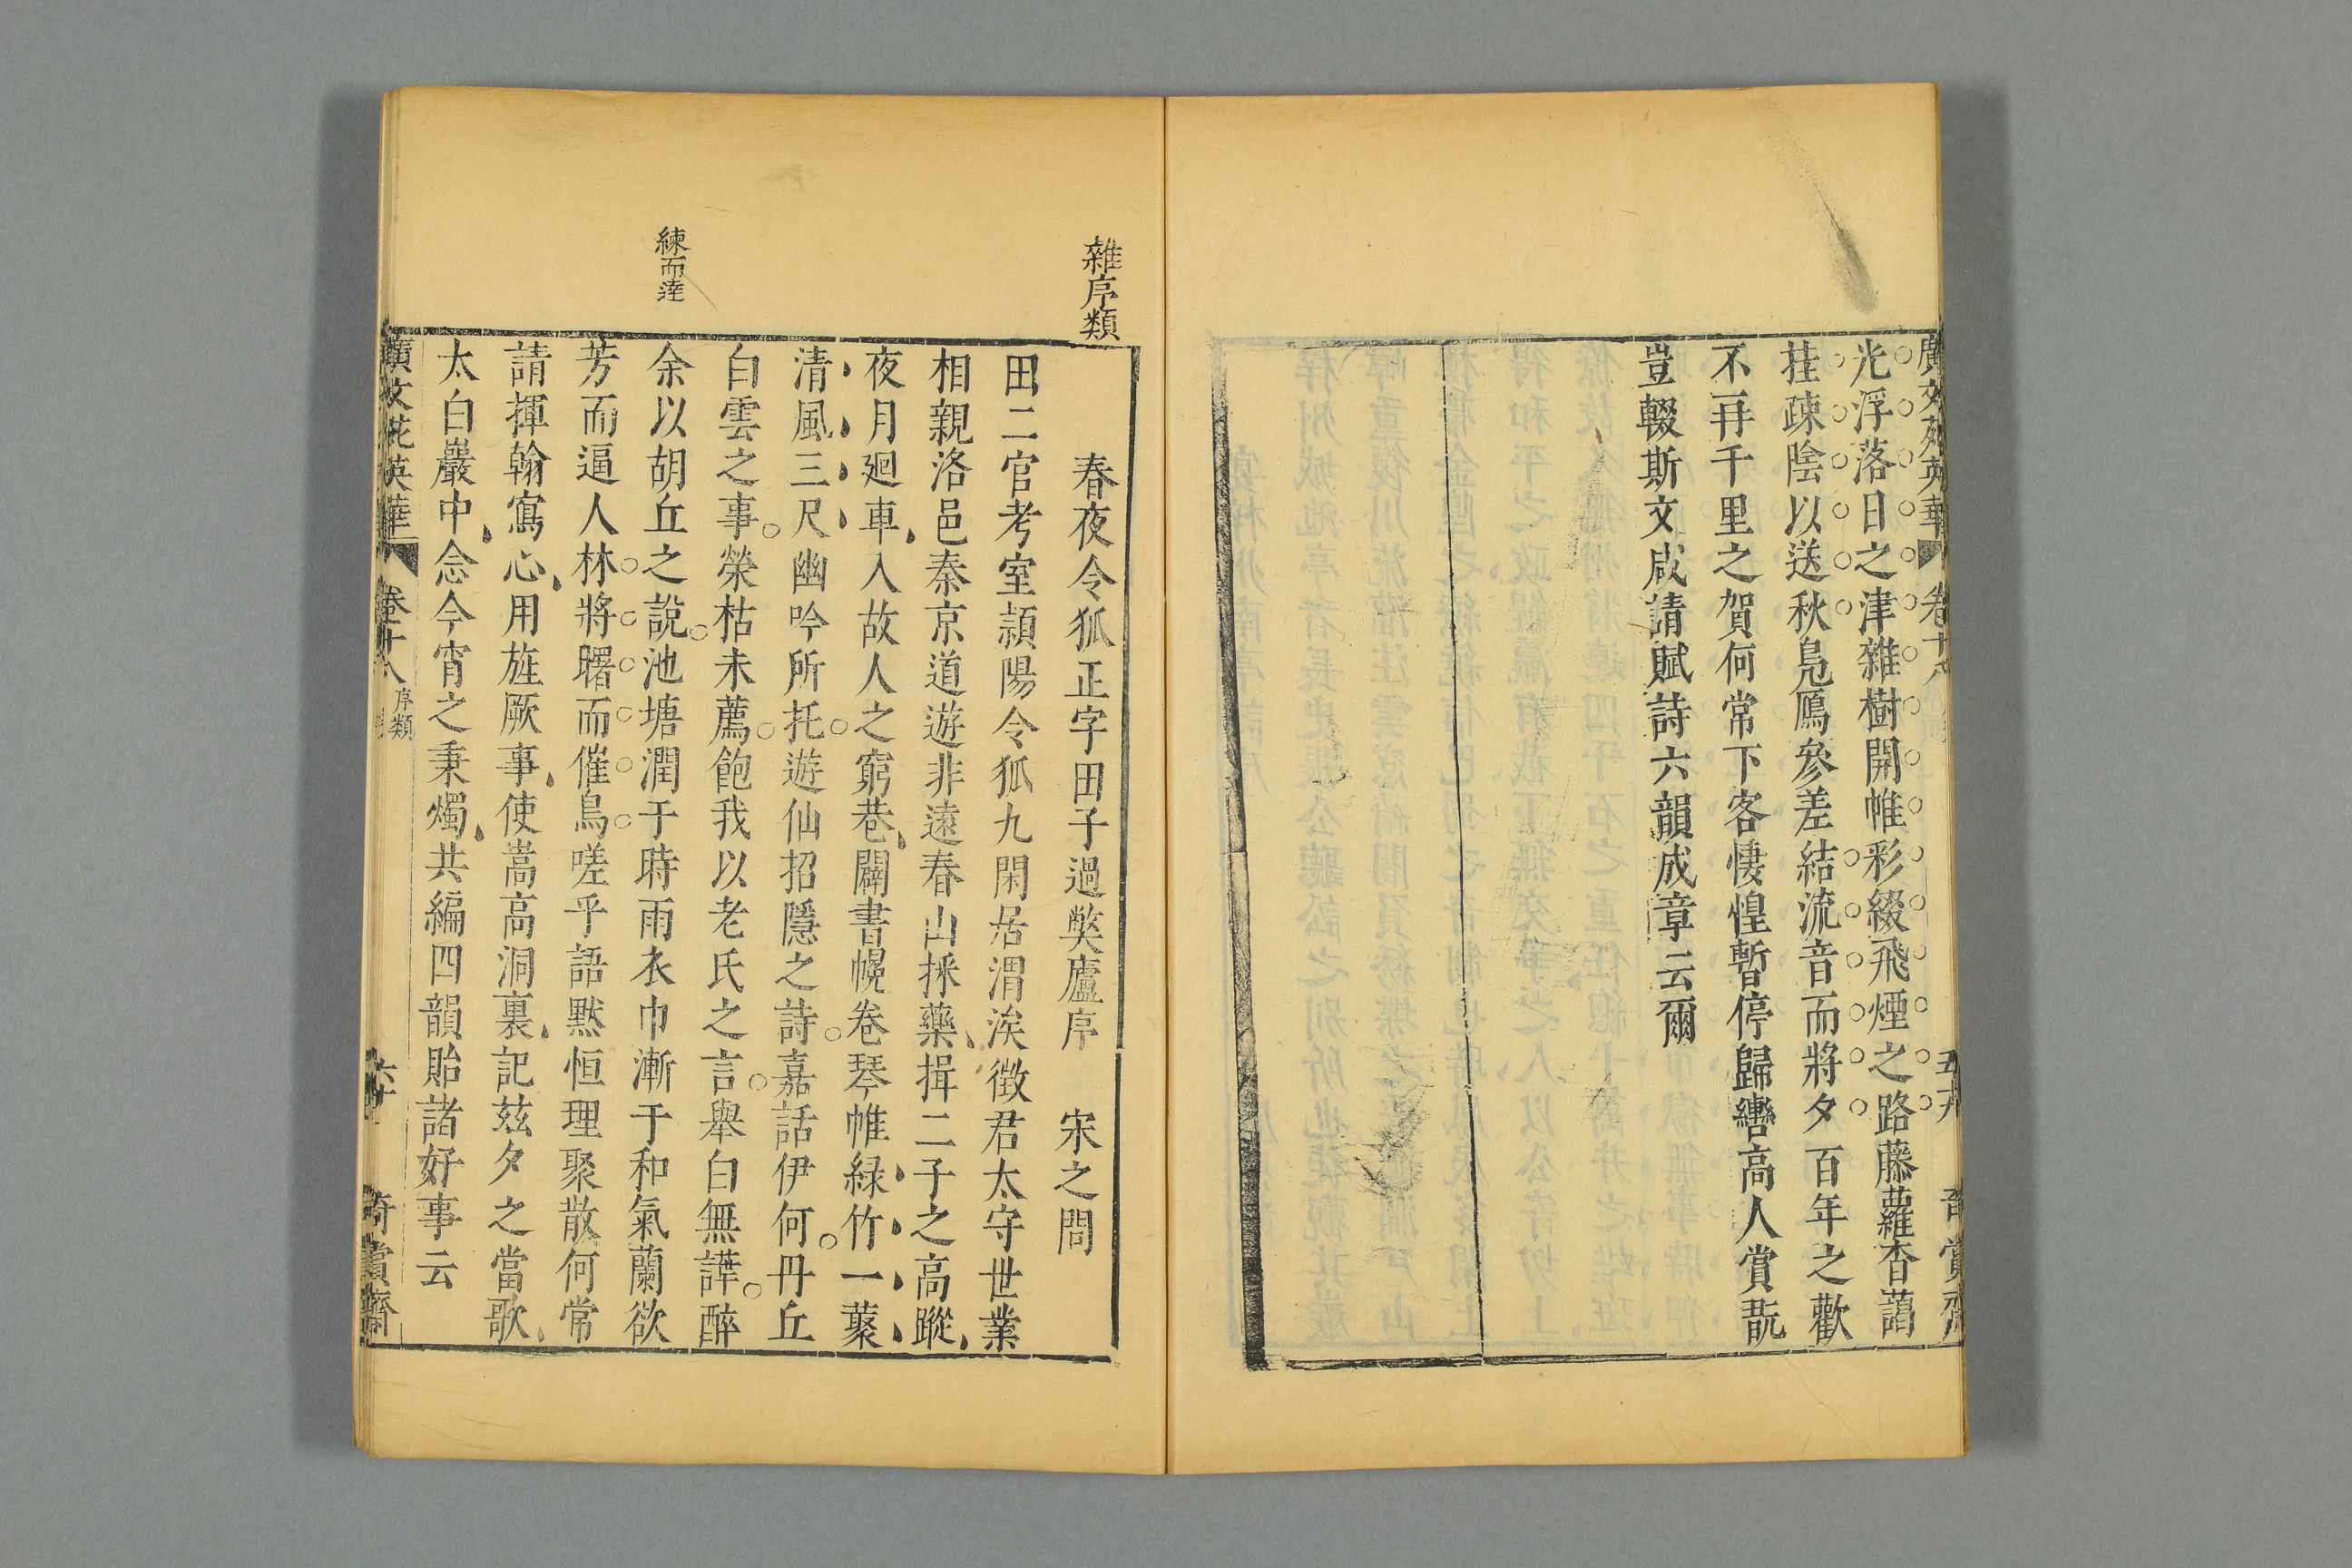 光浮落日之津雜樹開帷彩綴飛煙之路藤蘿杳藹
挂疎陰以送秋鳧鴈參差結流音而將夕百年之歡
不再千里之賀何常下客悽惶暫停歸轡高人賞翫
豈輟斯文咸請賦詩六韻成章云爾
雜序類
春夜令狐正字田子過獘廬序　宋之問
田二官考室潁陽令狐九閑居渭涘徴君太守世業
相親洛邑秦京道遊非遠春山採藥揖二子之高蹤
夜月廻車入故人之窮巷闢書幌卷琴帷綠竹一藂
清風三尺幽吟所托遊仙招隱之詩嘉話伊何丹丘
白雲之事榮枯未薦飽我以老氏之言舉白無譁醉
練而達
余以胡丘之說池塘潤于時雨衣巾漸于和氣蘭欲
芳而逼人林將曙而催鳥嗟乎語黙恒理聚散何常
請揮翰寫心用旌厥事使嵩高洞裏記茲夕之當歌
太白巖中念今宵之秉燭共編四韻貽諸好事云
廣文苑英華　卷十八　序類